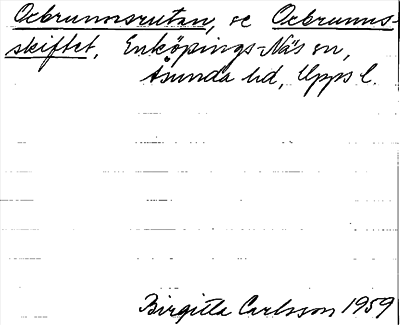 Ocbrunnsrutan, se Ocbrunns-
skiftet, Enköpings-Näs sn,
Åsunda hd, Upps l.
Birgitta Carlsson 1959